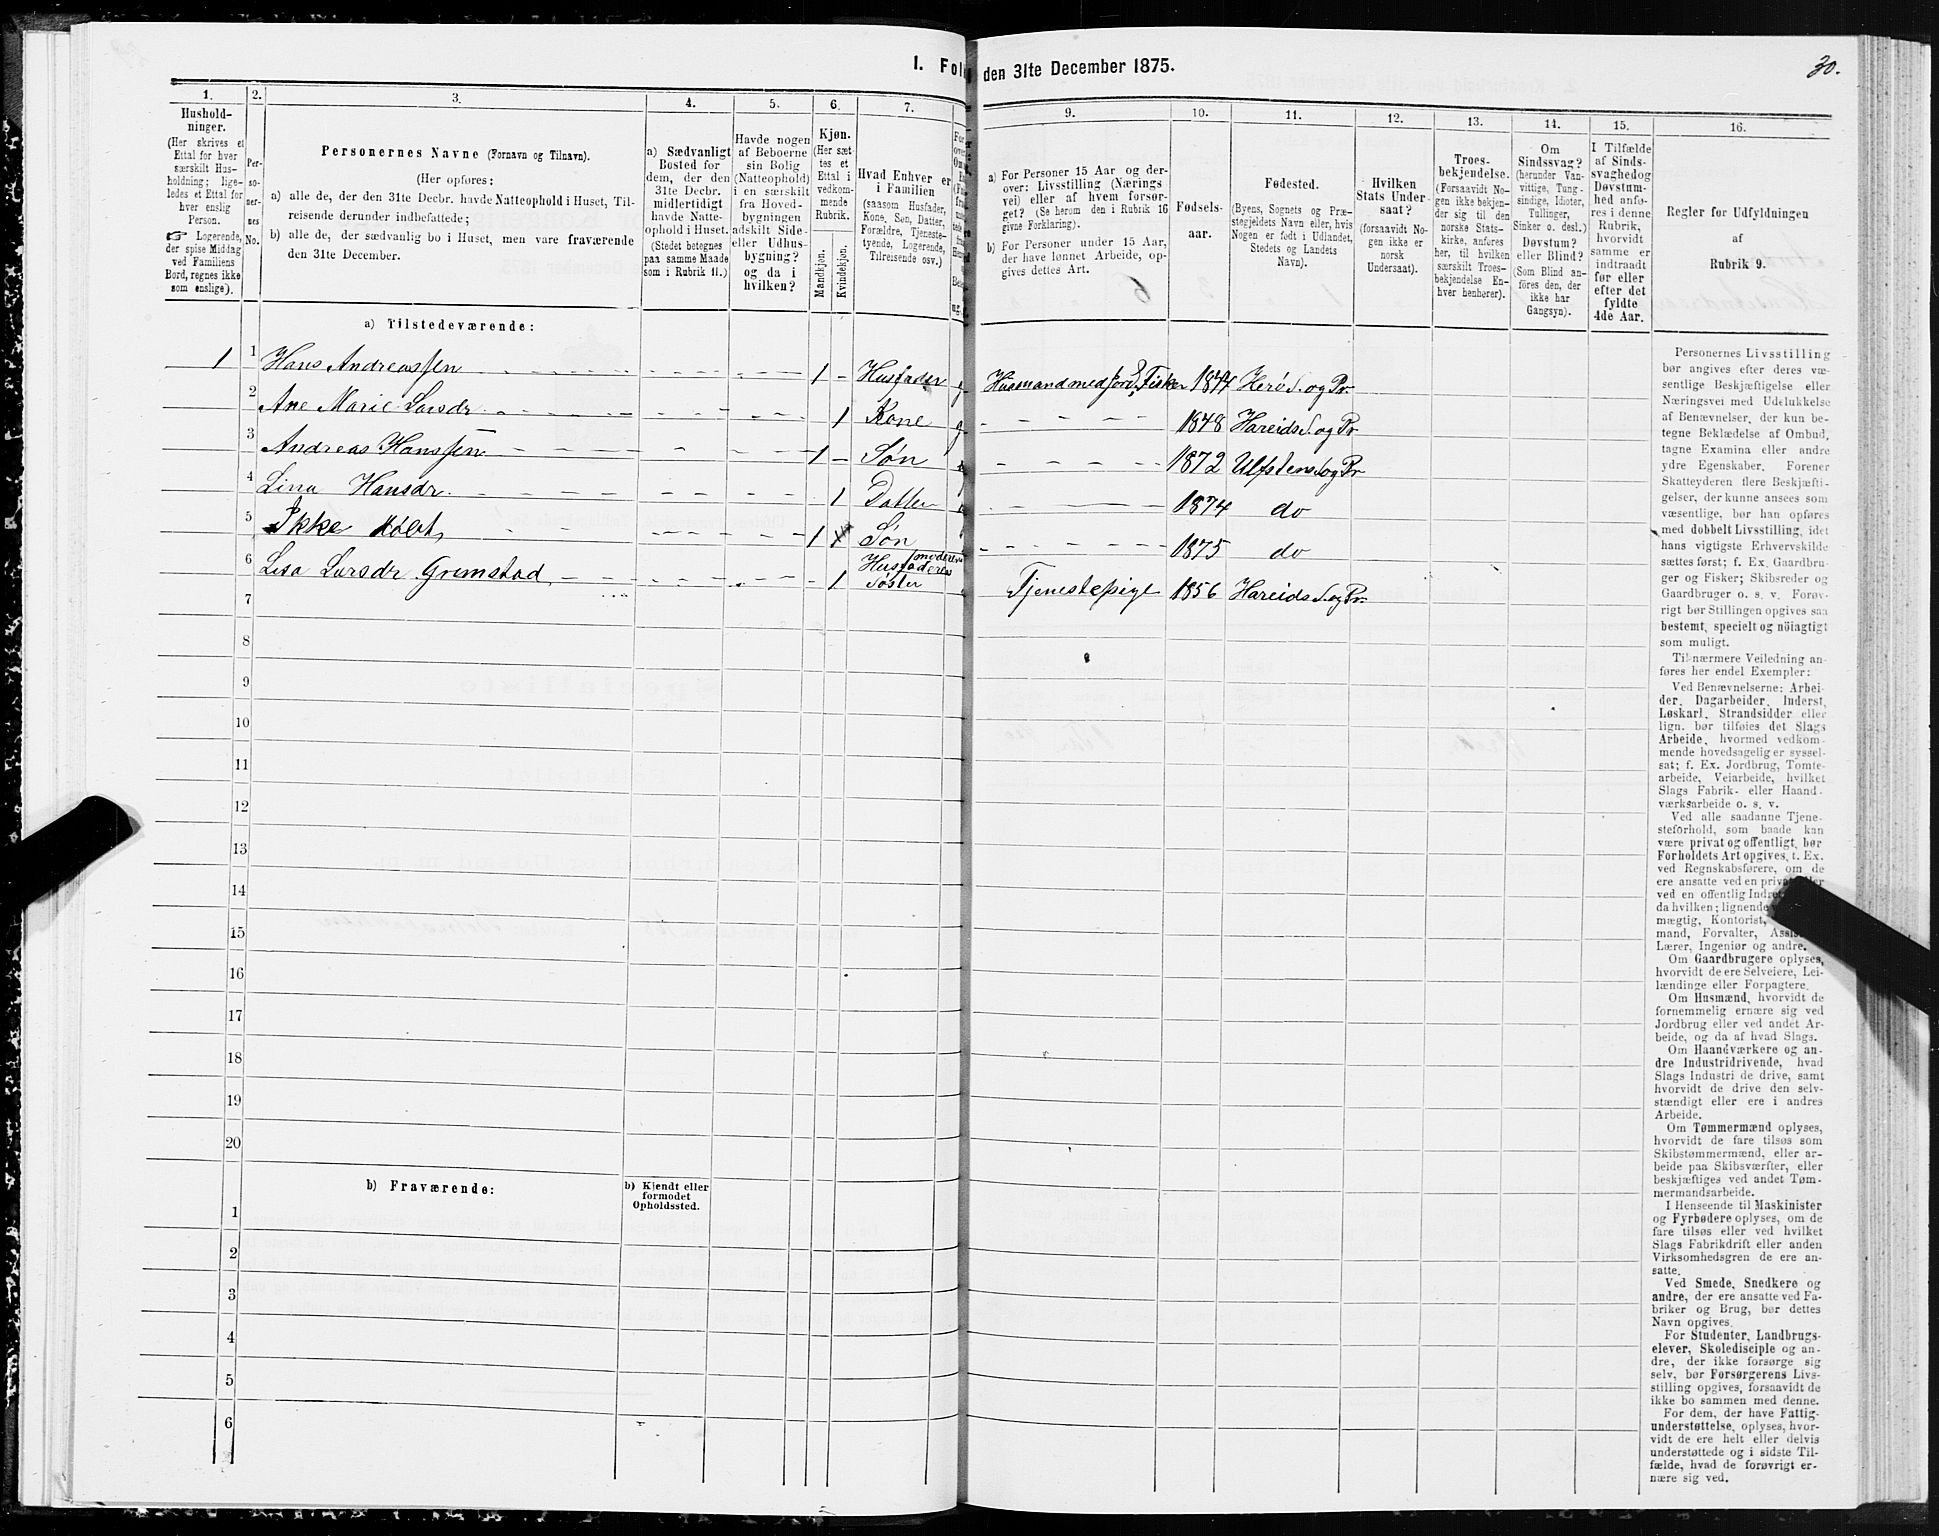 1. Fol
den 31te December 1875.
30.
1.
2.
3.
4.
5.
6.
7.
9.
10.
11.
12.
13.
14.
15.
16.
Hushold-
ninger.
(Her skrives et
Ettal for hver
særskilt Hus-
holdning; lige-
ledes et Ettal for
hver enslig
Person.
☞ Logerende,
der spise Middag
ved Familiens
Bord, regnes ikke
som enslige).
Per-
so-
ner-
nes
No.
Personernes Navne (Fornavn og Tilnavn).
(Her opføres:
a) alle de, der den 31te Decbr. havde Natteophold i Huset, Til-
reisende derunder indbefattede;
b) alle de, der sædvanlig bo i Huset, men vare fraværende
den 31te December.
a) Sædvanligt
Bosted for
dem, der den
31te Decbr.
midlertidigt
havde Natte-
ophold i Huset.
(Stedet betegnes
paa samme Maade
som i Rubrik 11.)
Havde nogen
af Beboerne
sin Bolig
(Natteophold)
i en særskilt
fra Hoved-
bygningen
adskilt Side-
eller Udhus-
bygning?
og da i
hvilken?
Kjøn.
(Her sæt-
tes et
Ettal i
vedkom-
mende
Rubrik.
Mandkjøn.
Kvindekjøn.
Hvad Enhver er
i Familien
(saasom Husfader,
Kone, Søn, Datter,
Forældre, Tjeneste-
tyende, Logerende,
Tilreisende osv.)
a) For Personer 15 Aar og der-
over: Livsstilling (Nærings
vei) eller af hvem forsør-
get? (Se herom den i Rubrik 16
givne Forklaring).
b) For Personer under 15 Aar,
der have lønnet Arbeide, op-
gives dettes Art.
Fødsels-
aar.
Fødested.
(Byens, Sognets og Præ-
stegjeldets Navn eller, hvis
Nogen er født i Udlandet,
Stedets og Landets
Navn).
Hvilken
Stats Under-
saat?
(forsaavidt No-
gen ikke er
norsk
Undersaat).
Troes-
bekjendelse.
(Forsaavidt No-
gen ikke bekjen-
der sig til den
norske Stats-
kirke, anføres
her, til hvilken
særskilt Troes-
bekjendelse En-
hver henhører).
Om
Sindssvag?
(herunder Van-
vittige, Tung-
sindige, Idioter,
Tullinger,
Sinker o. desl.)
Døvstum?
eller Blind?
(Som Blind an-
føres den, der
ikke har
Gangsyn).
I Tilfælde
af Sinds-
svaghed og
Døvstum-
hed anfø-
res i denne
Rubrik,
hvorvidt
samme er
indtraadt
før eller
efter det
fyldte
4de Aar.
Regler for Udfyldningen
af
Rubrik 9.
a) Tilstedeværende:
1 1 Hans Andreassen 1 - Husfader g Husmand med jord, Fisker 1844 Herø S. og Pr.
2 Ane Marie Larsdr. 1 Kone g 1848 Hareids S. og Pr
3 Andreas Hanssen 1 - Søn 1872 Ulfstens S. og Pr
4 Lina Hansdr. 1 Datter 1874 do
5 Ikke døbt 1 Søn 1875 do
6 Lisa Larsdr Grimstad 1 Husfaderens Søster Tjenestepige 1856 Hareids S. og Pr.
7
8
9
10
11
12
13
14
15
16
17
18
19
20
b) Fraværende:
b) Kjendt eller
formodet
Opholdssted.
1
2
3
4
5
6
Personernes Livsstilling
bør angives efter deres væ-
sentlige Beskjæftigelse eller
Næringsvei med Udelukkelse
af Benævnelser, der kun be-
tegne Beklædelse af Ombud,
tagne Examina eller andre
ydre Egenskaber. Forener
Skatteyderen flere Beskjæfti-
gelser, der kunne ansees som
væsentlige, bør han opføres
med dobbelt Livsstilling, idet
hans vigtigste Erhvervskilde
sættes først; f. Ex. Gaardbru-
ger og Fisker; Skibsreder og
Gaardbruger o. s. v. Forøv-
rigt bør Stillingen opgives saa
bestemt, specielt og nöiagtigt
som muligt.
Til nærmere Veiledning an-
føres her endel Exempler:
Ved Benævnelserne: Arbei-
der, Dagarbeider, Inderst,
Løskarl, Strandsidder eller
lign. bør tilføies det Slags
Arbeide, hvormed vedkom-
mende hovedsagelig er syssel-
sat; f. Ex. Jordbrug, Tomte-
arbeide, Veiarbeide, hvilket
Slags Fabrik- eller Haand-
værksarbeide o. s. v.
Ved alle saadanne Tjene-
steforhold, som baade kan
være privat og offentligt, bør
Forholdets Art opgives, f. Ex.
ved Regnskabsførere, om de
ere ansatte ved en privat eller
ved en offentlig Indret
da hvilken; lignende
mægtig, Kontorist,
mand, Forvalter, Assis
Lærer, Ingeniør og andre.
Om Gaardbrugere oplyses,
hvorvidt de ere Selveiere, Lei-
lændinge eller Forpagtere.
Om Husmænd, hvorvidt de
fornemmelig ernære sig ved
Jordbrug eller ved andet Ar-
beide, og da af hvad Slags.
Om Haandværkere og an-
dre Industridrivende, hvad
Slags Industri de drive, samt
hvorvidt de drive den selv-
stændigt eller ere i andres
Arbeide.
Om Tømmermænd oplyses,
hvorvidt de fare tilsøs som
Skibstømmermænd, eller ar-
beide paa Skibsværfter, eller
beskjæftiges ved andet Tøm-
mermandsarbeide.
I Henseende til Maskinister
og Fyrbødere oplyses, om de
fare tilsøs eller ved hvilket
Slags Fabrikdrift eller anden
Virksomhedsgren de ere an-
satte.
Ved Smede, Snedkere og
andre, der ere ansatte ved Fa-
briker og Brug, bør dettes
Navn opgives.
For Studenter, Landbrugs-
elever, Skoledisciple og an-
dre, der ikke forsørge sig
selv, bør Forsørgerens Livs-
stilling opgives, forsaavidt de
ikke bo sammen med denne.
For dem, der have Fattig-
understøttelse, oplyses, hvor-
vidt de ere helt eller delvis
understøttede og i sidste Til-
fælde, hvad de forøvrigt er-
nære sig ved.